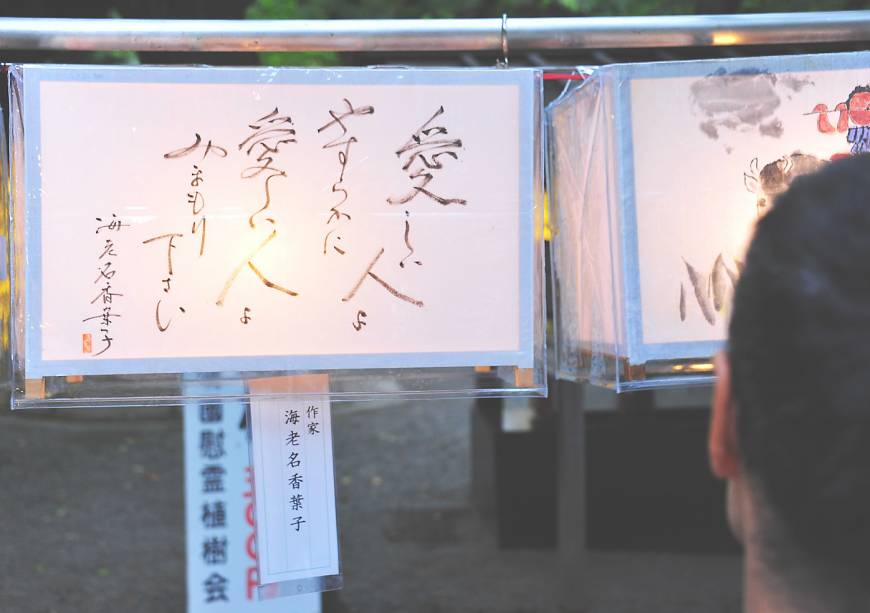 愛しい人よ
やすらかに
愛しい人よ
みまもり
下さい
海老名香葉子
作家
海老名香葉子
慰霊植樹会